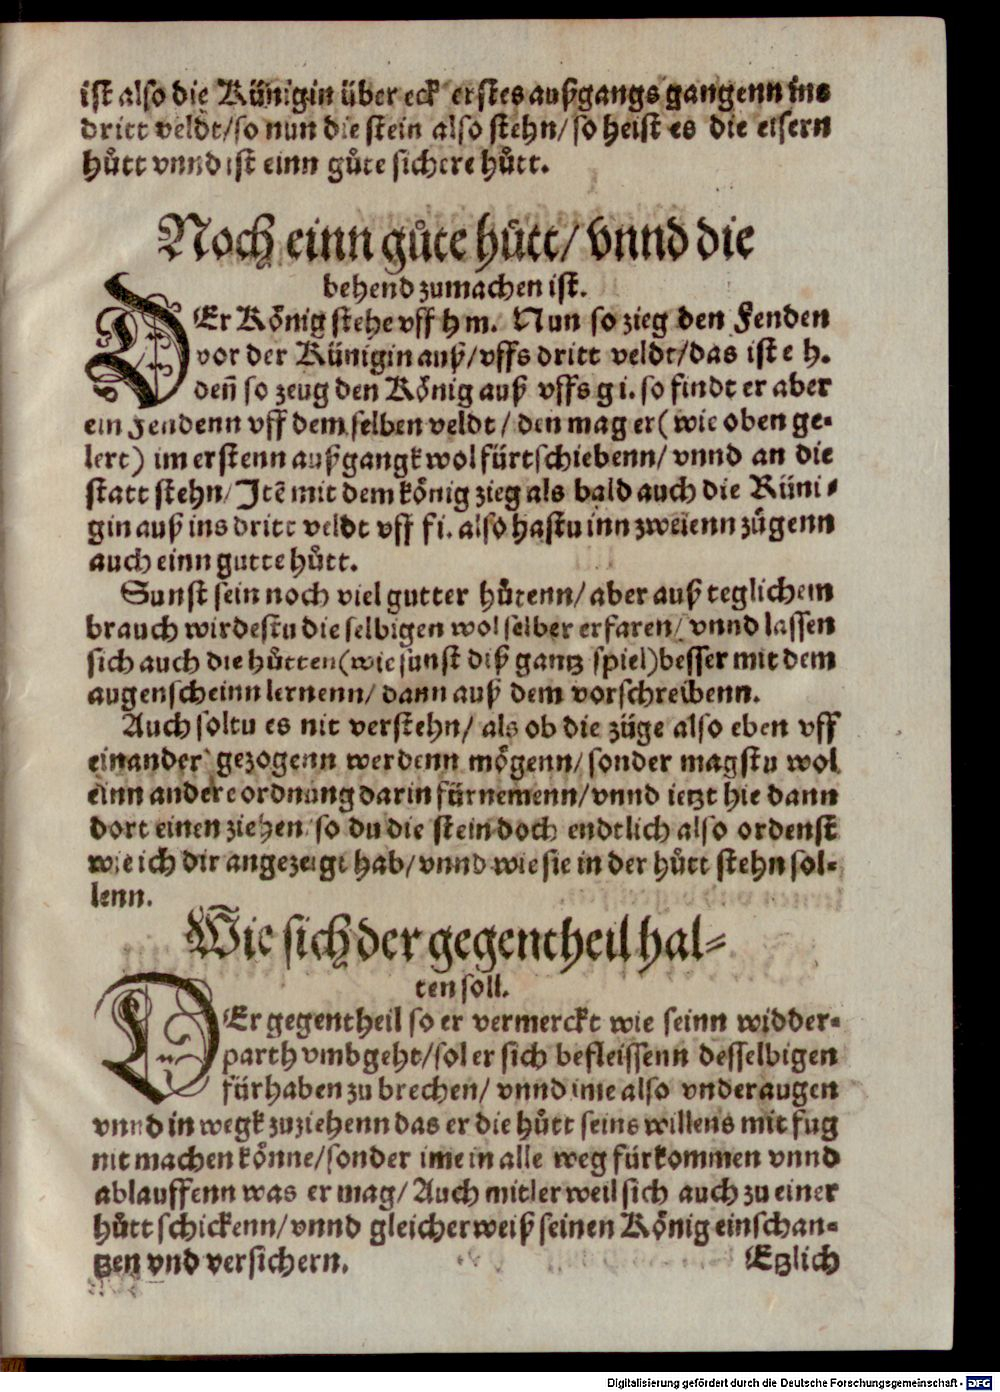 ist also die Künigin über eck erstes außgangs gangenn ins
dritt veldt/so nun die stein also stehn/so heist es die eisern
hůtt vnnd ist einn gůte sichere hůtt.
Noch einn gůte hůtt/ vnnd die
behend zumachen ist.
DEr König stehe vff h m. Nun so zieg den Fenden
vor der Künigin auß/vffs dritt veldt/das ist e h.
den̄ so zeug den König auß vffs g i. so findt er aber
ein Fendenn vff dem selben veldt/ den mag er (wie oben ge-
lert) im erstenn außgangk wol fürtschiebenn/ vnnd an die
statt stehn/ Jtē mit dem könig zieg als bald auch die Küni-
gin auß ins dritt veldt vff f i. also hastu inn zweienn zügenn
auch einn gutte hůtt.
Sunst sein noch viel gutter hůtenn/ aber auß teglichem
brauch wirdestu die selbigen wol selber erfaren/ vnnd lassen
sich auch die hůtten (wie sunst diß gantz spiel) besser mit dem
augenscheinn lernenn/ dann auß dem vorschreibenn.
Auch soltu es nit verstehn/ als ob die züge also eben vff
einander gezogenn werdenn mögenn/ sonder magstu wol
einn andere ordnung darin fürnemenn/ vnnd ietzt hie dann
dort einen ziehen/ so du die stein doch endtlich also ordenst
wie ich dir angezeigt hab/ vnnd wie sie in der hůtt stehn sol-
lenn.
Wie sich der gegentheil hal-
ten soll.
DEr gegentheil so er vermerckt wie seinn widder-
parth vmbgeht/sol er sich befleissenn desselbigen
fürhaben zu brechen/ vnnd ime also vnder augen
vnnd in wegk zuziehenn das er die hůtt seins willens mit fug
nit machen könne/sonder ime in alle weg fürkommen vnnd
ablauffenn was er mag/ Auch mitler weil sich auch zu einer
hůtt schickenn/ vnnd gleicher weiß seinen König einschan-
tzen vnd versichern.
Etzlich
Digitalisierung gefördert durch die Deutsche Forschungsgemeinschaft - DFG